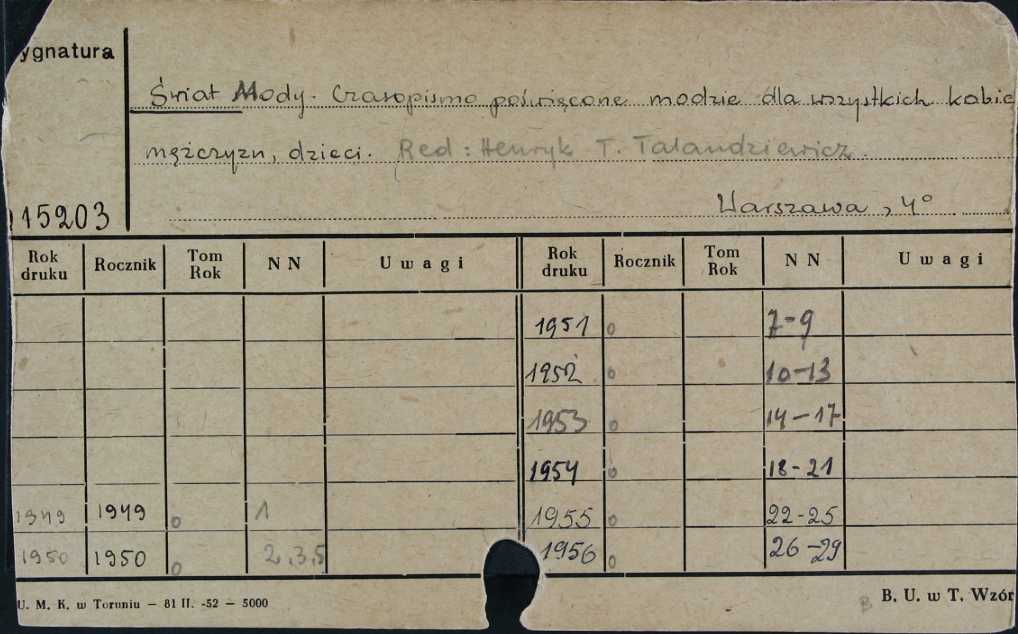 ygnatura
Świat Mody. Czasopismo poświęcone modzie dla wszystkich kobie
mężczyzn, dzieci. Red: Henryk T. Talandziewicz.
15203
Warszawa, 4°
Rok druku Rocznik Tom Rok NN Uwagi Rok druku Rocznik Tom Rok NN Uwagi
1951 0 7-9
1952 0 10-13
1953 0 14-17
1954 0 18-21
1949 1949 0 1 1955 0 22-25
1950 1950 0 2,3,5 1956 0 26-29
U. M. K. w Toruniu — 81 II. -52 — 5000 B B. U. w T. Wzór